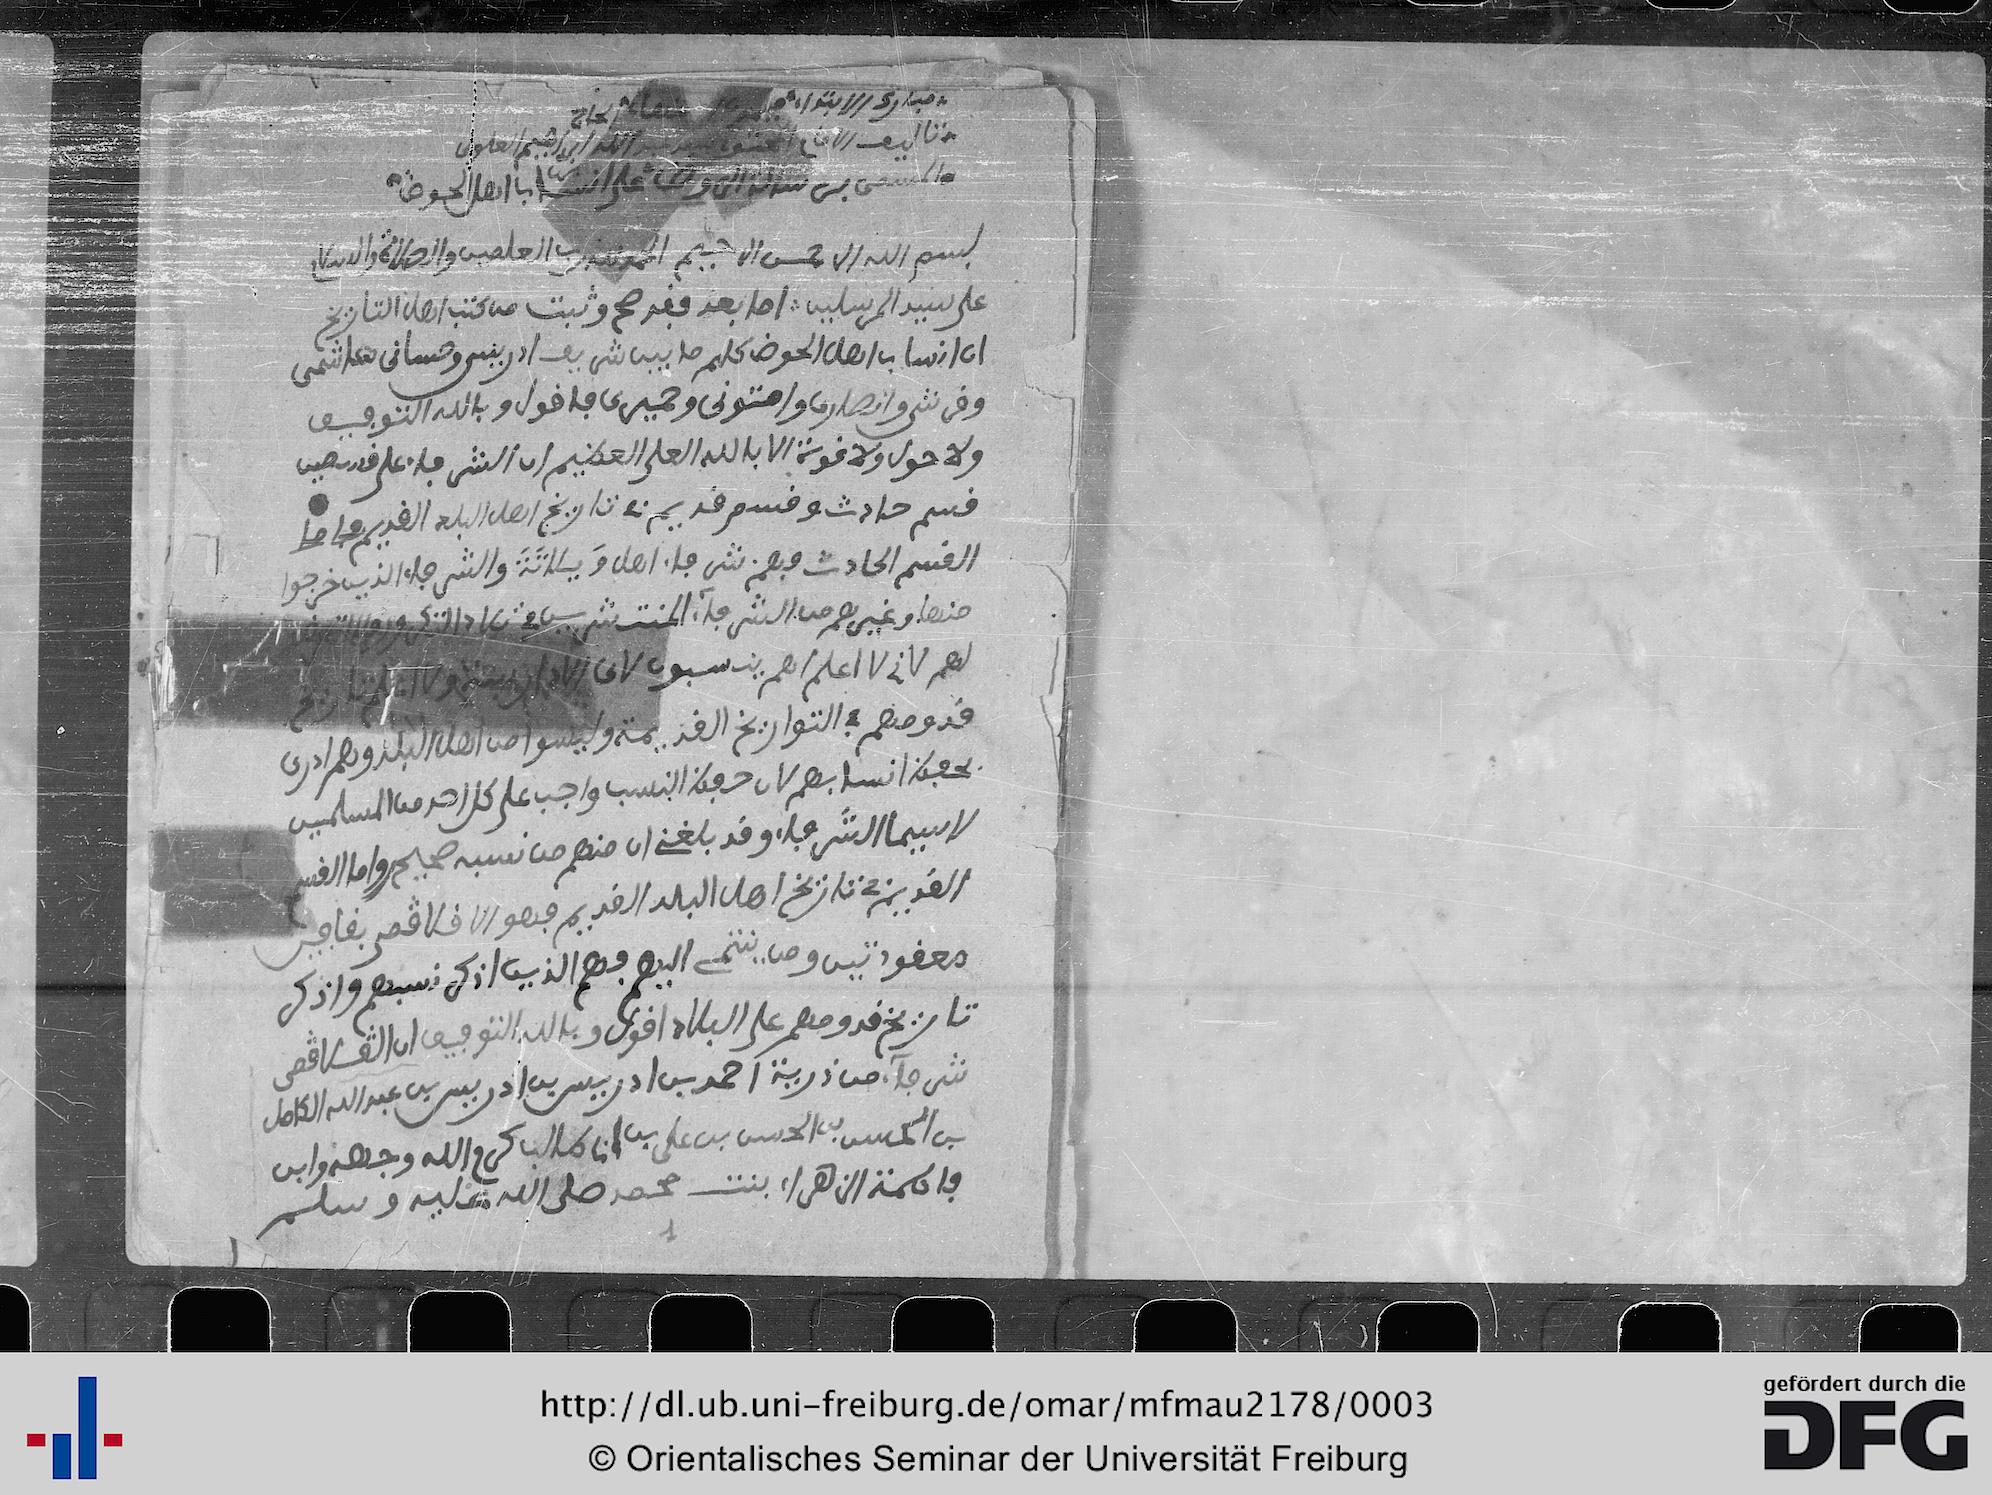 تاليف الامام المحقق سيد عبد الله بن ابراهيم العلوي
على انساب اهل الحوض
بسم الله الرحمن الرحيم الحمد لله رب العلمين والصلاة والسلام
على سيد المرسلين اما بعد فقد صح وثبت من كتب اهل التاريخ
ان انساب اهل الحوض كلهم ما بين شريف ادريسي وحساني هاشمي
وقرشي وانصاري ولمتوني وحميري فاقول وبالله التوفيق
ولا حول ولا قوة الا بالله العلي العظيم ان الشرفاء على قسمين
قسم حادث وقسم قديم في تاريخ اهل البلد القديم فاما
القسم الحادث فهم شرفاء اهل ولاتة والشرفاء الذين خرجوا
منها وغيرهم من الشرفاء المنتشرين في بلاد
لهم لاني لا اعلم اهم ينسبون لاي ولا اعلم تاريخ
قدومهم في التواريخ القديمة وليسوا من اهل البلد وهم ادرى
بحفظ انسابهم لان حفظ النسب واجب على كل احد من المسلمين
لا سيما الشرفاء وقد بلغني ان منهم من نسبه صحيح واما القسم
القديم في تاريخ اهل البلد القديم فهو الا
ومن ينتمي اليهم فهم الذين اذكر نسبهم واذكر
تاريخ قدومهم على البلاد اقول وبالله التوفيق ان
شرفاء من ذرية احمد بن ادريس بن ادريس بن عبد الله الكامل
بن الحسن بن الحسن بن علي بن ابي طالب كرم الله وجهه وابن
فاطمة الزهراء بنت محمد صلى الله عليه وسلم
1
http://dl.ub.uni-freiburg.de/omar/mfmau2178/0003
© Orientalisches Seminar der Universität Freiburg
gefördert durch die
DFG